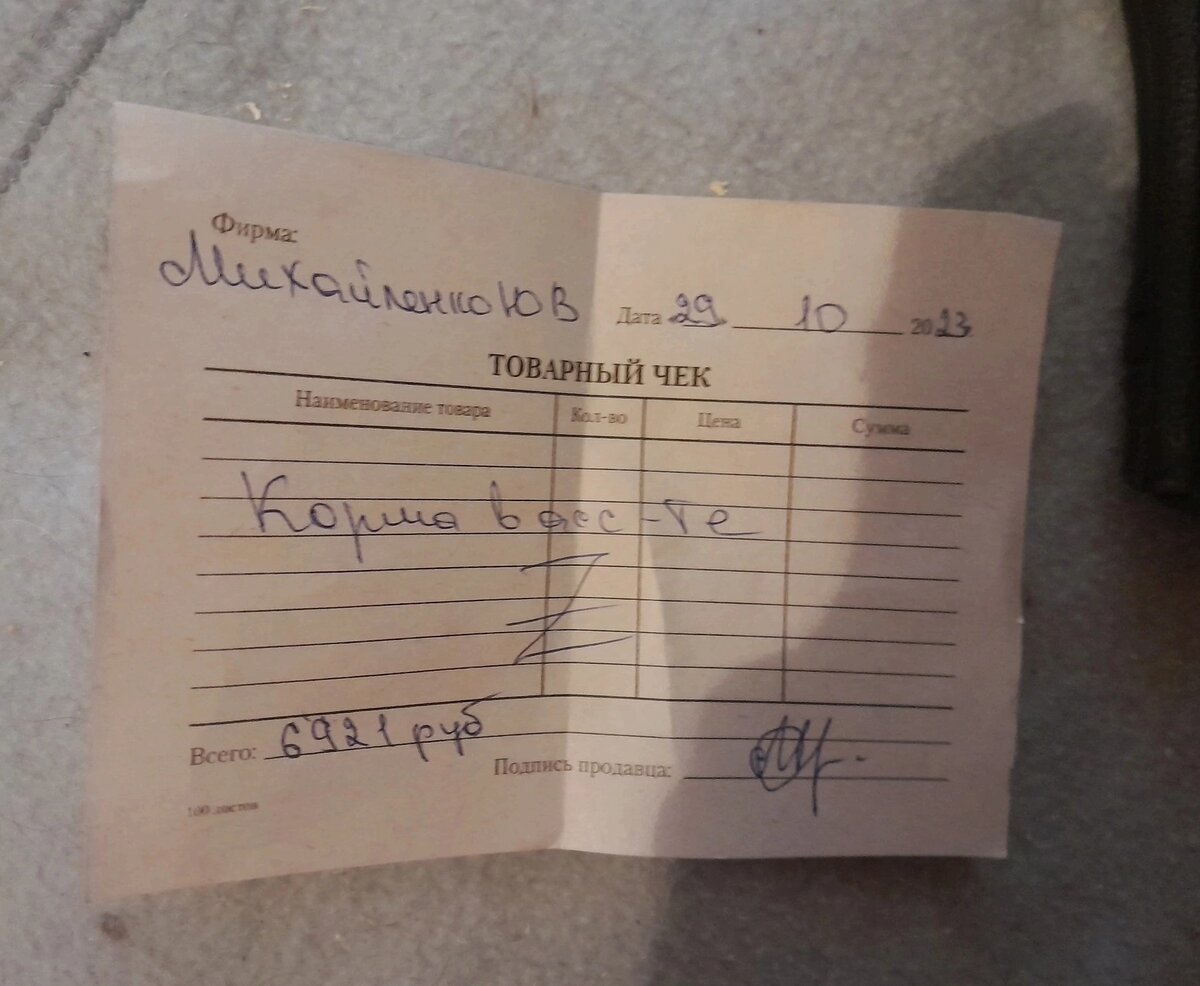 Фирма:
Михайленко Ю В
Дата 29 10 2023
ТОВАРНЫЙ ЧЕК
Наименование товара Кол-во Цена Сумма
Корма в асс-те
Всего: 6921 руб
Подпись продавца:
100 листов